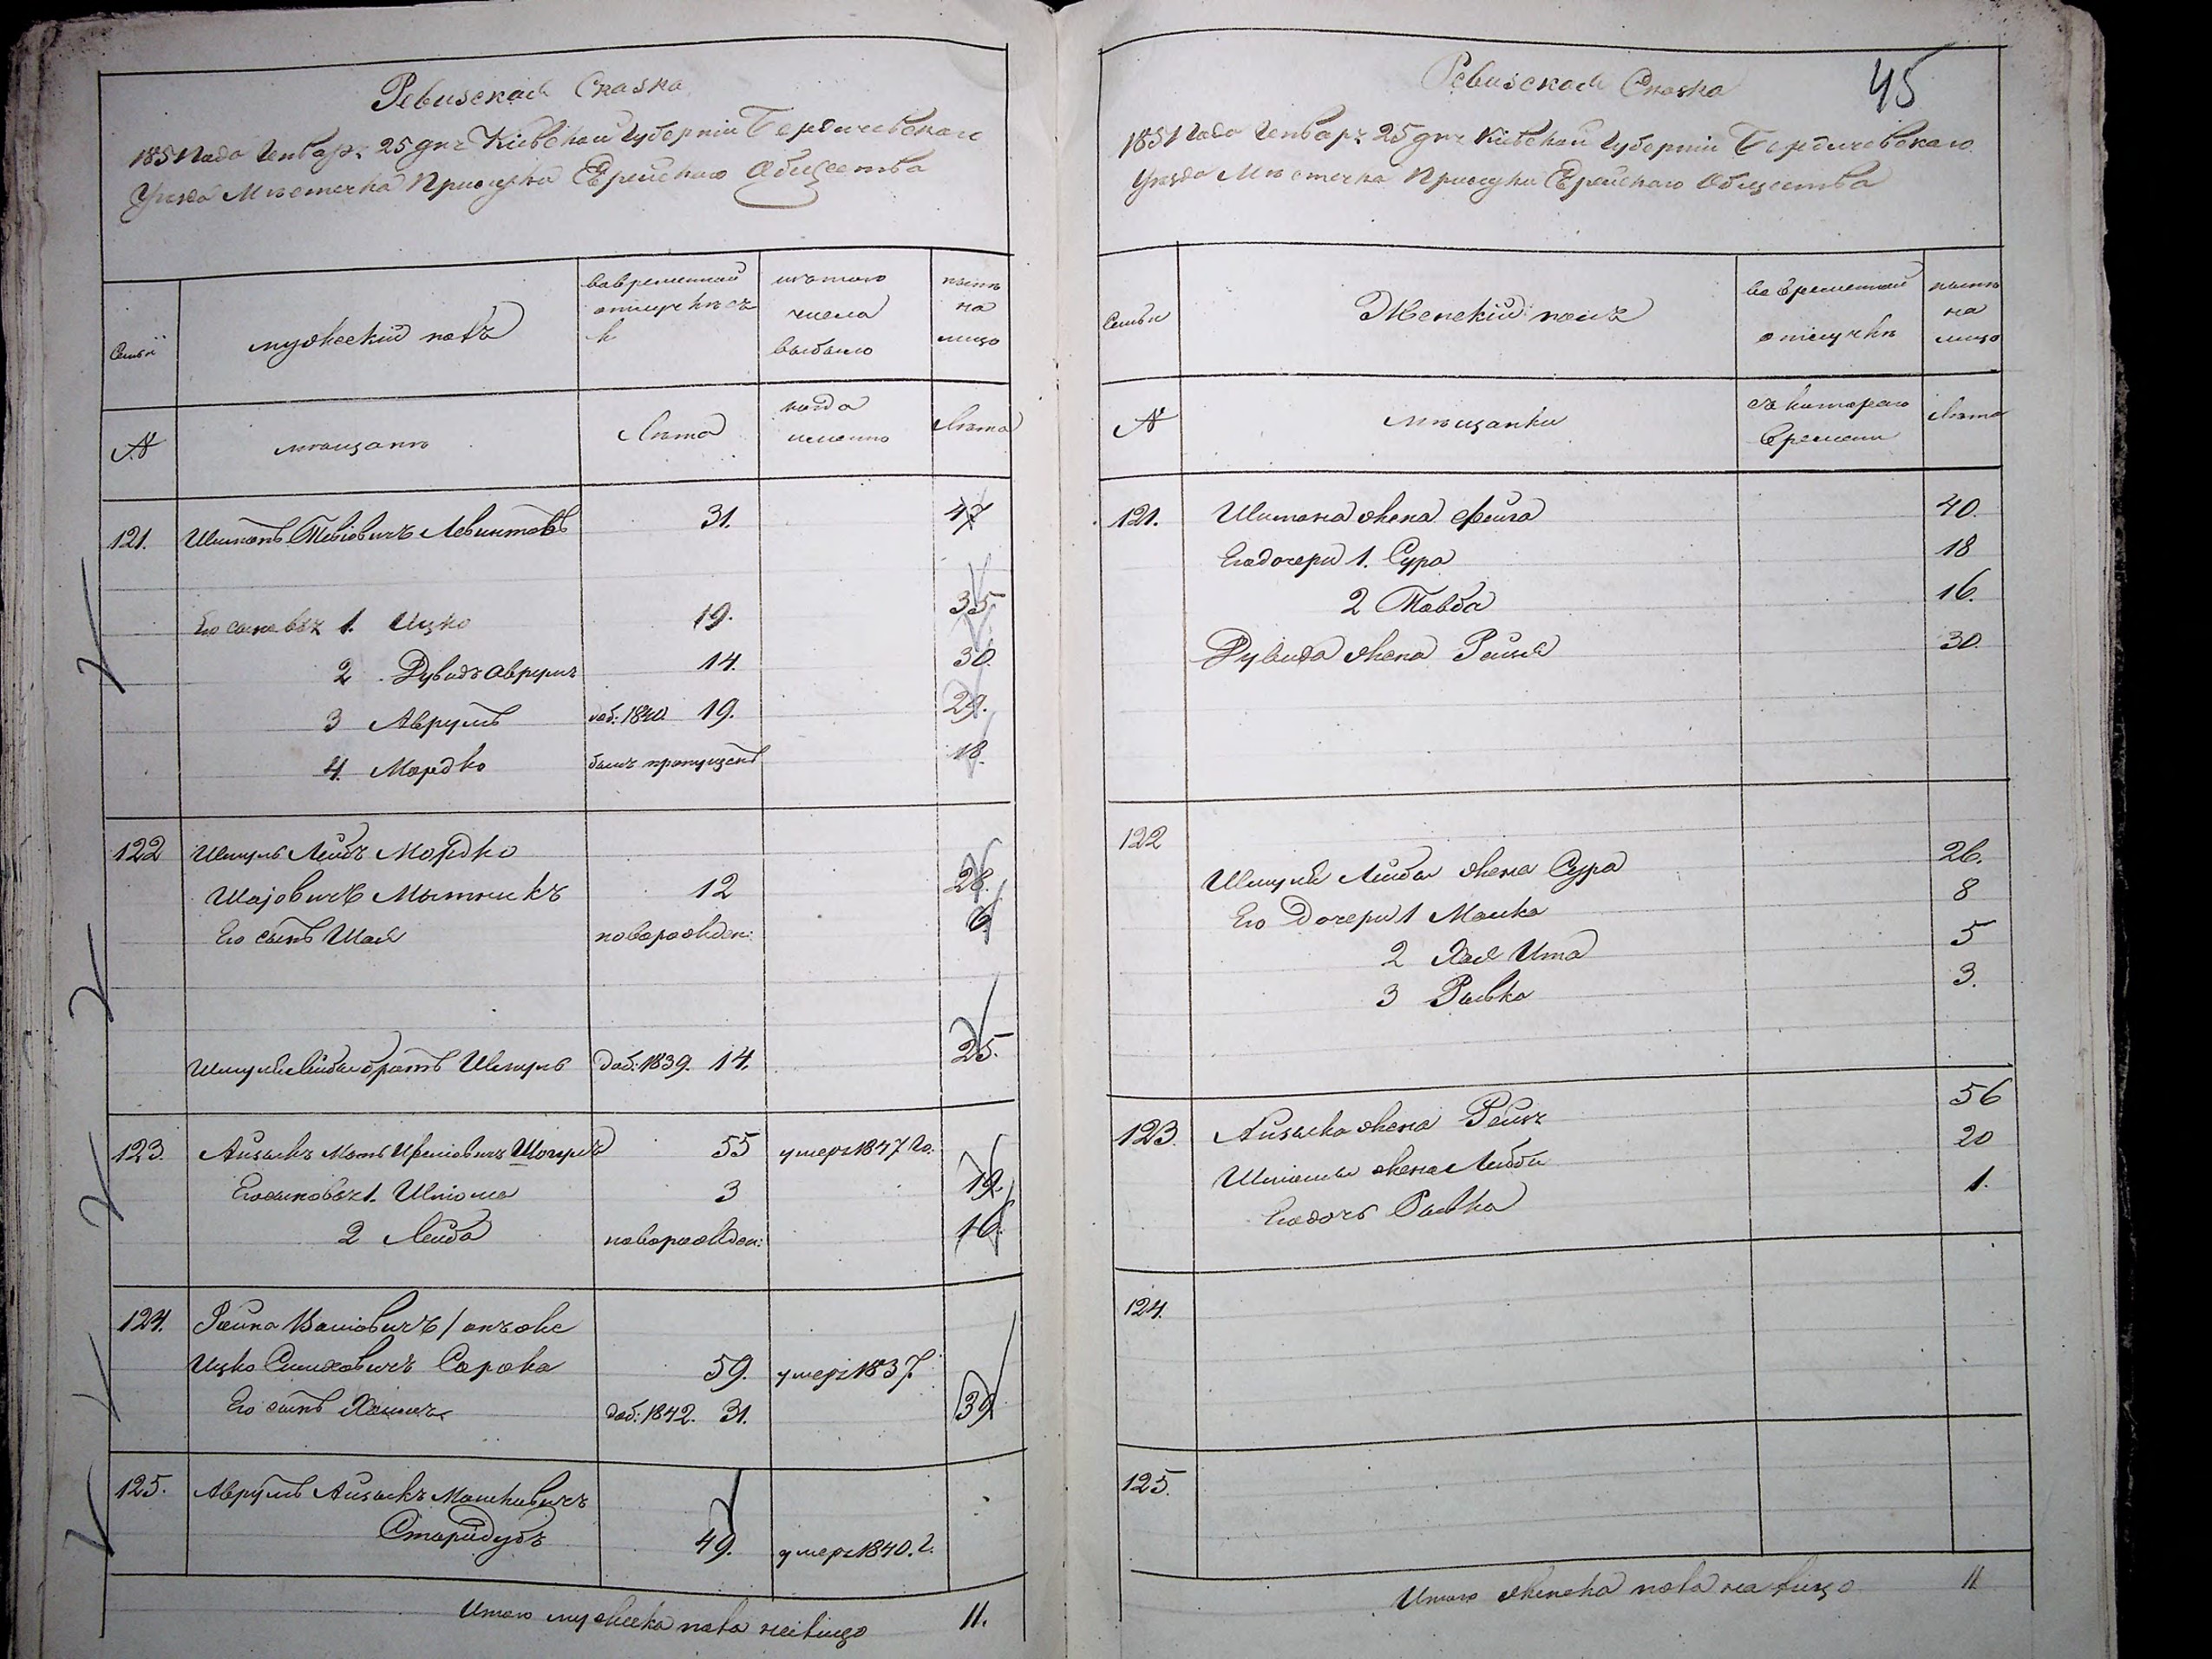 Ревизская Сказка
1851 Года Генваря 25 дня Кіевской Губерніи Бердичевскаго
Уезда Мѣстечка Прилуки Еврейскаго Общества
Семьи
мужескій полъ
во временной
отлучкѣ съ
изъ того
числа
выбыло
нынѣ
на
лицо
№
мѣщанѣ
Лѣта
когда
именно
Лѣта
121. Шимонъ Тевіовичъ Левинтовъ 31. 47
Его сыновья 1. Ицко 19. 35.
2 Дувидъ Аврумъ 14. 30.
3 Аврумъ доб: 1840. 19. 29.
4. Мордко былъ пропущенъ 18.
122 Шмуль Лейбъ Мордко
Шаjовичъ Мытникъ 12 28.
Его сынъ Шая новорожден: 9.
Шмуля Лейбы братъ Шмуль доб: 1839. 14. 25.
123. Айзыкъ 55 умеръ 1847 го.
Его сыновья 1. Шліома 3 19.
2 Лейба новорожден: 16.
124. онъ же
Ицко Симховичъ Сорока 59. умеръ 1837.
Его сынъ Хаимъ доб: 1842. 31. 39
125. Аврумъ Айзыкъ Машковичъ
Старидубъ 49. умеръ 1840. г.
Итого мужеска пола на лицо 11.
45
Ревизская Сказка
1851 Года Генваря 25 дня Кіевской Губерніи Бердичевскаго
Уезда Мѣстечка Прилуки Еврейскаго Общества
Семьи
Женскій полъ
во временной
отлучкѣ
нынѣ
на
лицо
№
мѣщанки
съ котораго
времени
Лѣта
121. Шимона жена Фейга 40.
Его дочери 1. Сура 18
2 Товба 16.
Дувида жена Рейзя 30.
122
Шмуля Лейбы жена Сура 26.
Его Дочери 1 Малка 8
2 Хая Ита 5
3 Рывка 3.
123. Айзыка жена 56
Шліомы жена Либа 20
Его дочь Рывка 1.
124.
125.
Итого женска пола на лицо 11